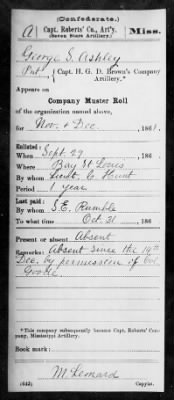 (Confederate.)
A Capt. Roberts' Co., Art'y. Miss.
(Seven Stars Artillery.)
George S. Ashley
Pvt, Capt. H. G. D. Brown's Company
Artillery.*
Appears on
Company Muster Roll
of the organization named above,
for Nov. & Dec., 186
Enlisted:
When Sept. 29, 186
Where Bay St. Louis
By whom Lieut. C. Hunt
Period 1 year
Last paid:
By whom S.E. Rumble
To what time Oct 31, 186
Present or absent Absent
Remarks: Absent since the 14th
Dec. by permission of Col.
*This company subsequently became Capt. Roberts' Company, Mississippi Artillery.
Book mark:
M. Leonard
(642) Copyist.